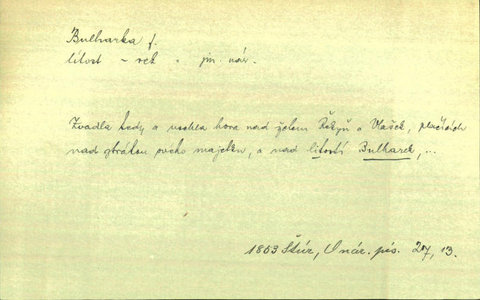 Bulharka f.
lítost – rek " jm. nár.
Zvadla tedy a uschla hora nad želem Řekyň a Vlašek, plačících
nad ztrátou svého majetku, a nad lítostí Bulharek, ...
1853 Štúr, O nár. pís. 27, 13.